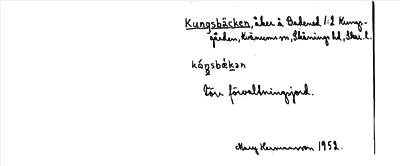 Kungsbäcken, åker å Badened 1:2 Kungs-
gården, Kvänums sn, Skånings hd, Skar. l.
kóŋsbækan
Torr förvaltningsjord.
Mary Hermansson 1952.